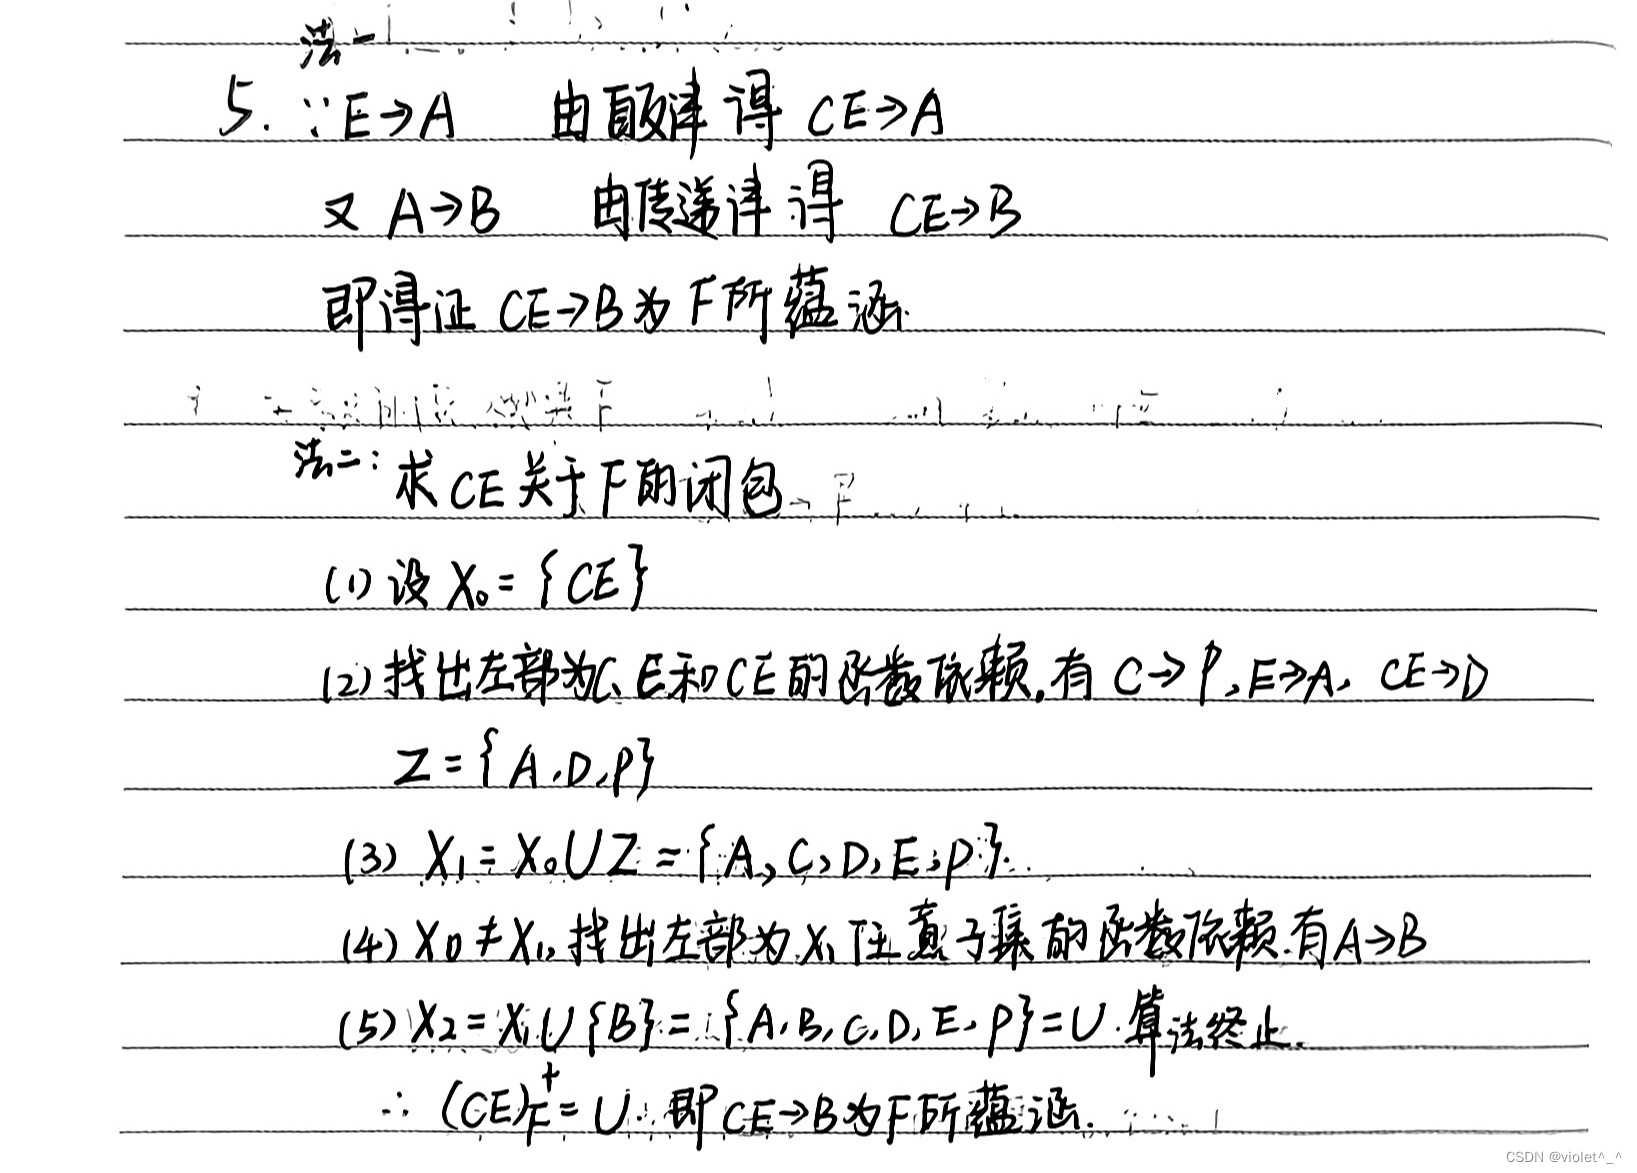 法一
5. ∵E→A 由自反律得 CE→A
又 A→B 由传递律得 CE→B
即得证 CE→B为F所蕴涵.
法二: 求CE关于F的闭包
(1) 设 X₀={CE}
(2) 找出左部为C、E和CE的函数依赖,有 C→P, E→A, CE→D
Z={A,D,P}
(3) X₁=X₀∪Z={A,C,D,E,P}.
(4) X₀≠X₁,找出左部为X₁任意子集的函数依赖,有A→B
(5) X₂=X₁∪{B}={A,B,C,D,E,P}=U.算法终止.
∴ (CE)F⁺=U.即CE→B为F所蕴涵.
CSDN @violet^_^